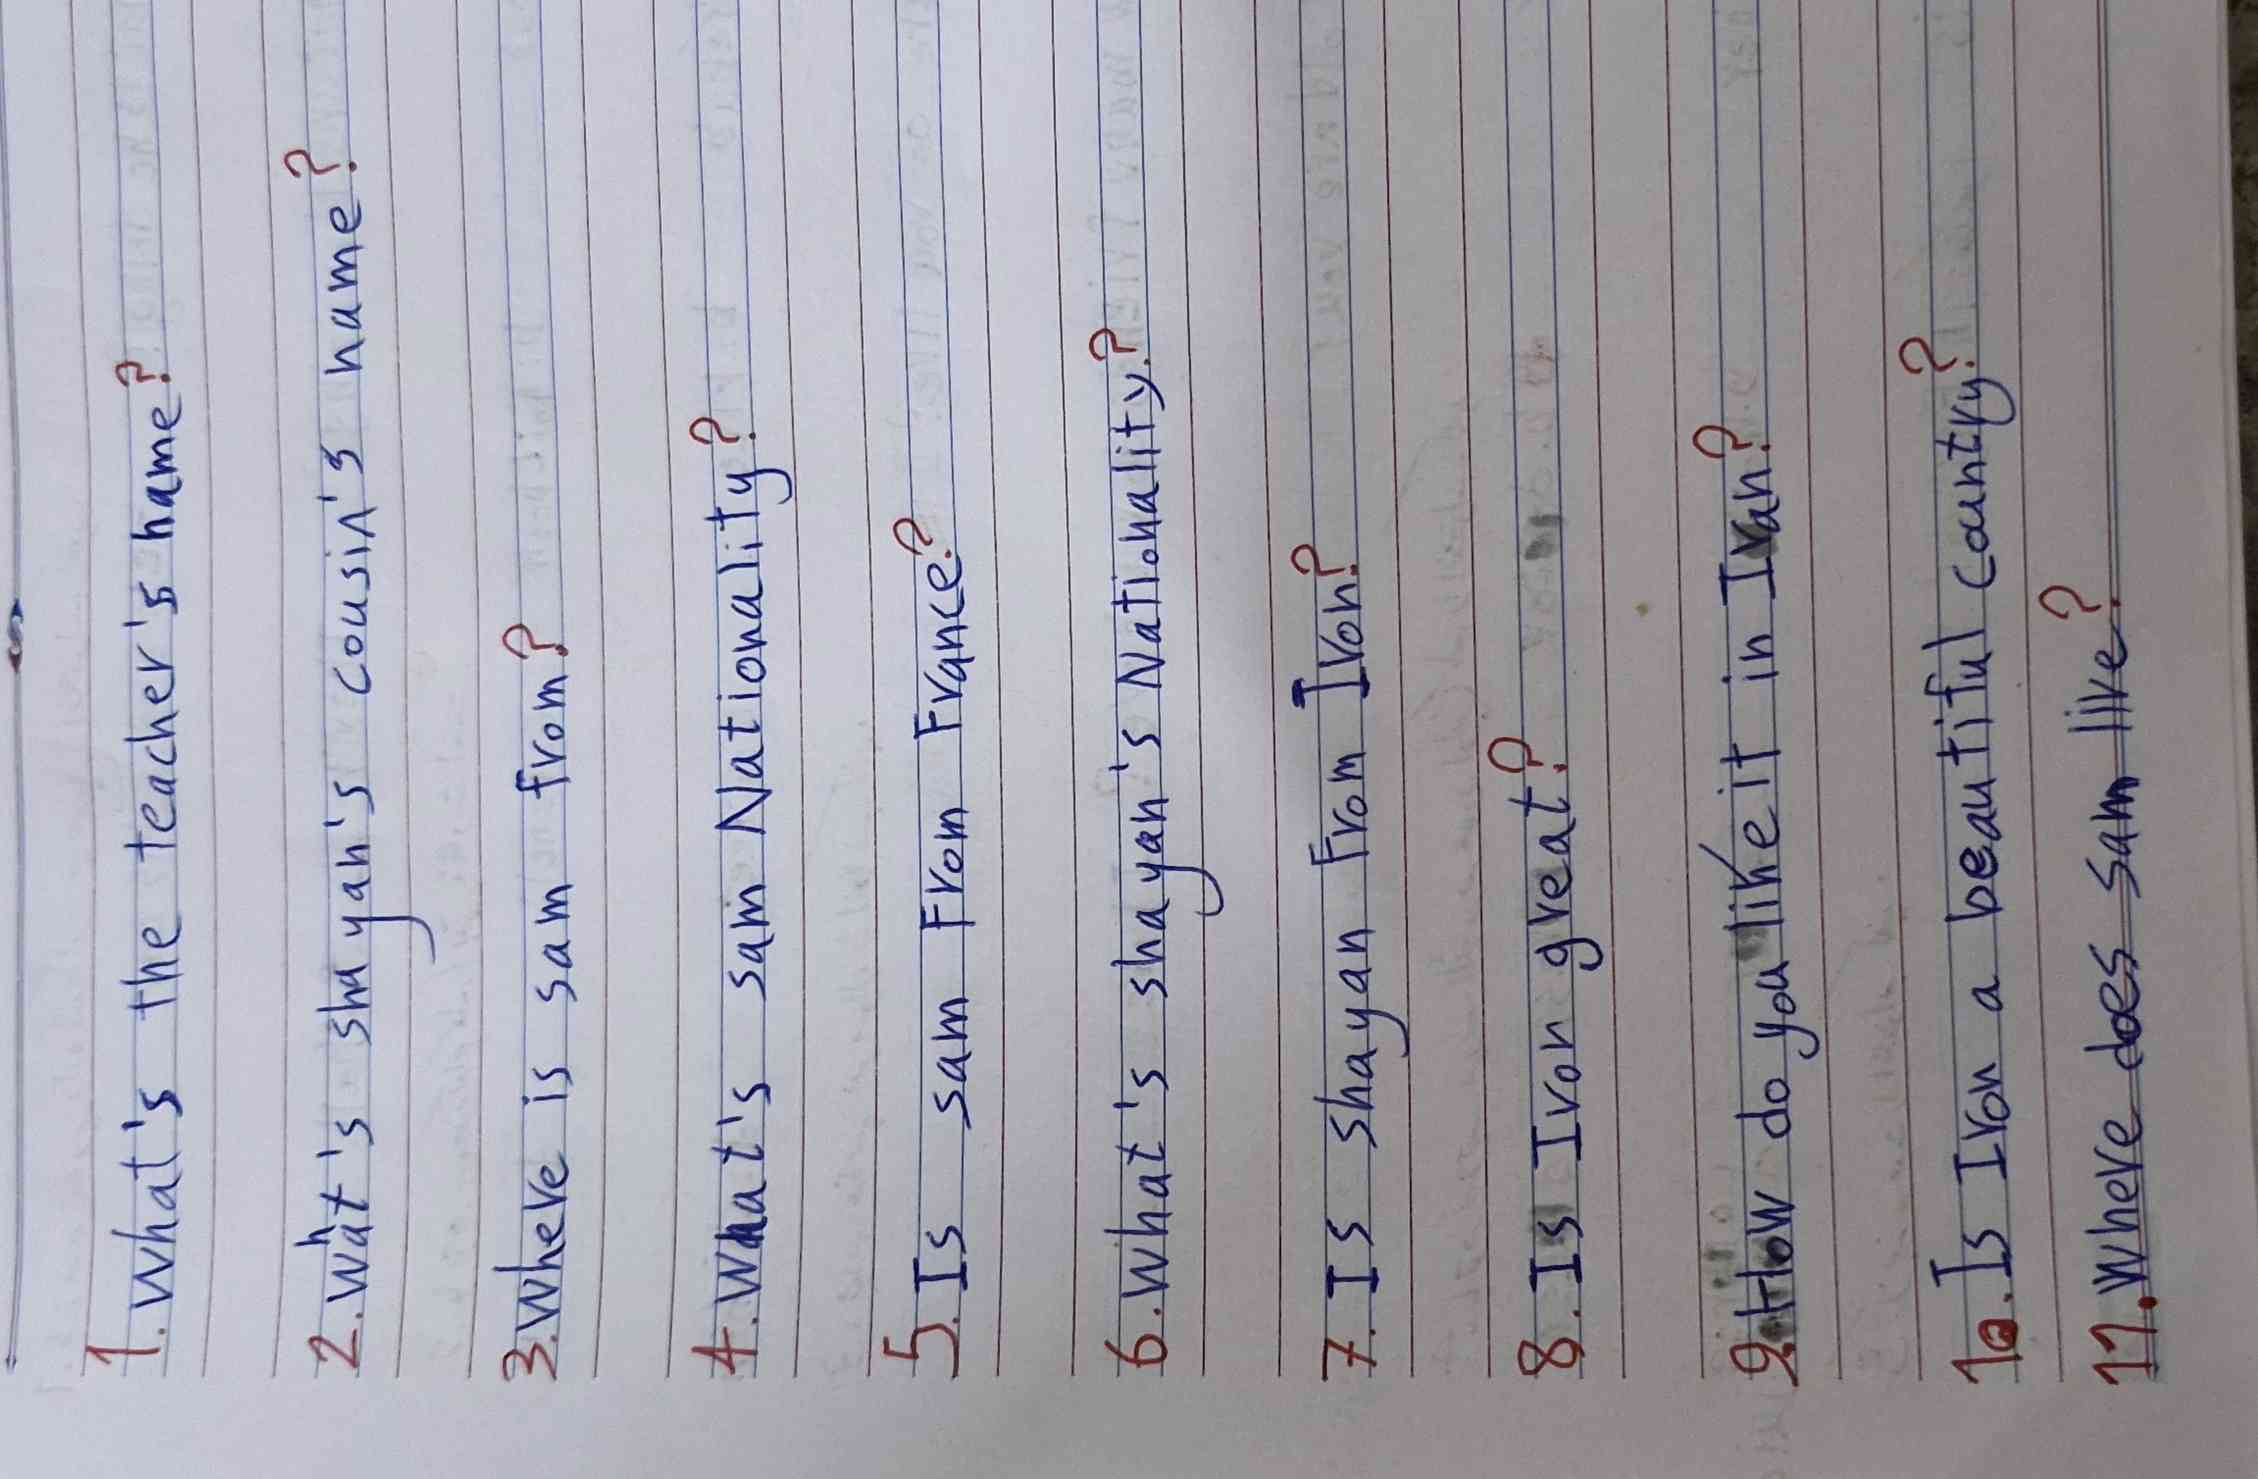 1. What's the teacher's name?
2. What's shayan's cousin's name?
3. Where is sam from?
4. What's sam Nationality?
5. Is sam From France?
6. What's shayan's Nationality?
7. Is shayan From Iron?
8. Is Iron great?
9. How do you like it in Iran?
10. Is Iron a beautiful country?
11. Where does sam like?